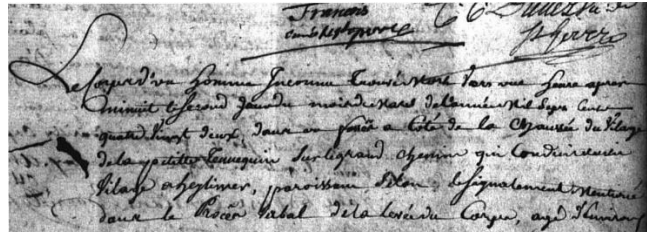 François
Le corps d'un homme Inconnu trouvé mort vers une heure apres
minuit le second jour du mois de mars de l'année Mil Sept Cent
quatre vingt deux, dans un fossé a côté de la chaussée du Vilage
de la petitte Tennequin sur le grand chemin qui conduit dudit
Vilage a heylimer, paroissien selon le signalement mentioné
dans le Procès verbal de la levée du Corps, agé d'Environ